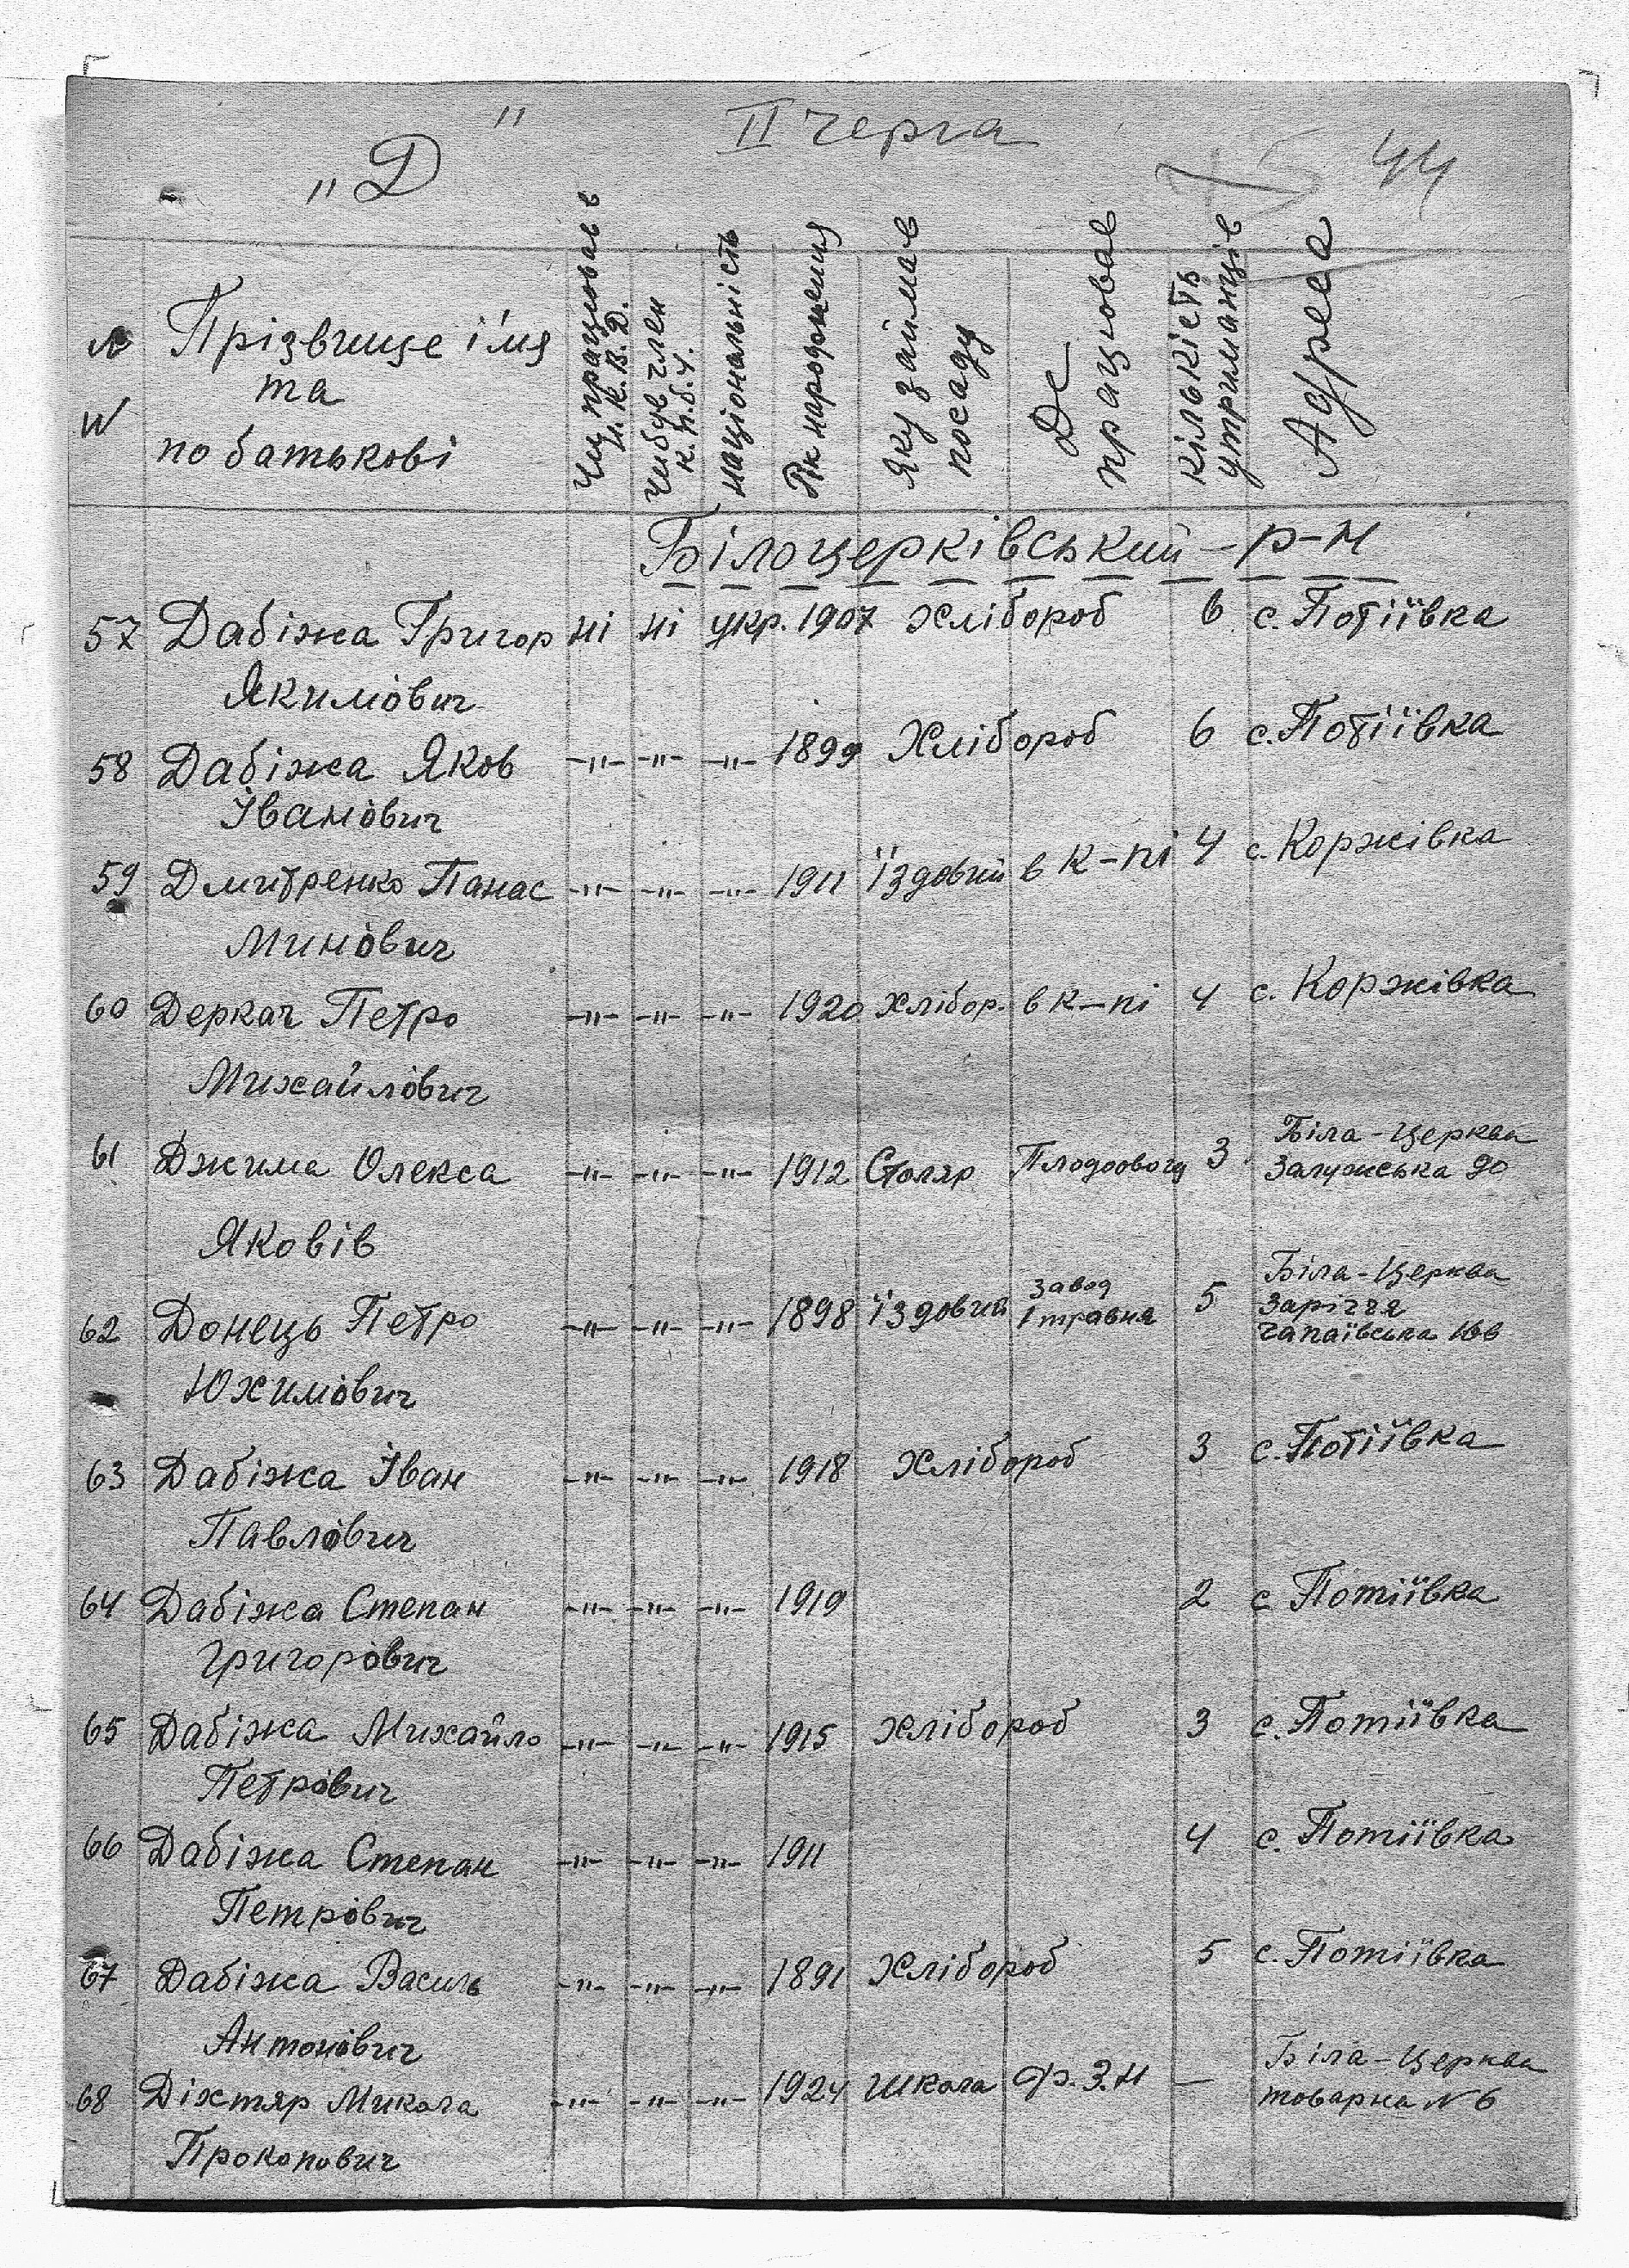 „Д"
II черга
44
№ №
Прізвище ім'я
та
по батькові
Чи працював в
Н.К.В.Д.
Чи був член
К.П.б.У.
національність
Рік народження
Яку займав
посаду
Де
працював
кількість
утриманців
Адреса
Білоцерківський – р-н
57 Дабіжа Григор ні ні укр. 1907 Хлібороб 6 с. Потіївка
Якимович
58 Дабіжа Яков -"- -"- -"- 1899 Хлібороб 6 с. Потіївка
Іванович
59 Дмитренко Панас -"- -"- -"- 1911 Їздовий в к-пі 4 с. Коржівка
Минович
60 Деркач Петро -"- -"- -"- 1920 Хлібор. в к-пі 4 с. Коржівка
Михайлович
61 Джима Олекса -"- -"- -"- 1912 Столяр Плодоовощ 3 Біла-Церква
Залузська 90
Яковів
62 Донець Петро -"- -"- -"- 1898 їздовий завод 1 травня 5 Біла-Церква
Заріччя
Чапаївська 166
Юхимович
63 Дабіжа Іван -"- -"- -"- 1918 Хлібороб 3 с. Потіївка
Павлович
64 Дабіжа Степан -"- -"- -"- 1919 2 с Потіївка
Григорович
65 Дабіжа Михайло -"- -"- -"- 1915 Хлібороб 3 с. Потіївка
Петрович
66 Дабіжа Степан -"- -"- -"- 1911 4 с. Потіївка
Петрович
67 Дабіжа Василь -"- -"- -"- 1891 Хлібороб 5 с. Потіївка
Антонович
68 Діхтяр Микола -"- -"- -"- 1924 Школа Ф.З.Н — Біла-Церква
товарна № 6
Прокопович